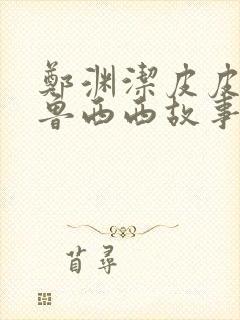 鄭渊潔皮皮
鲁西西故事
苜尋